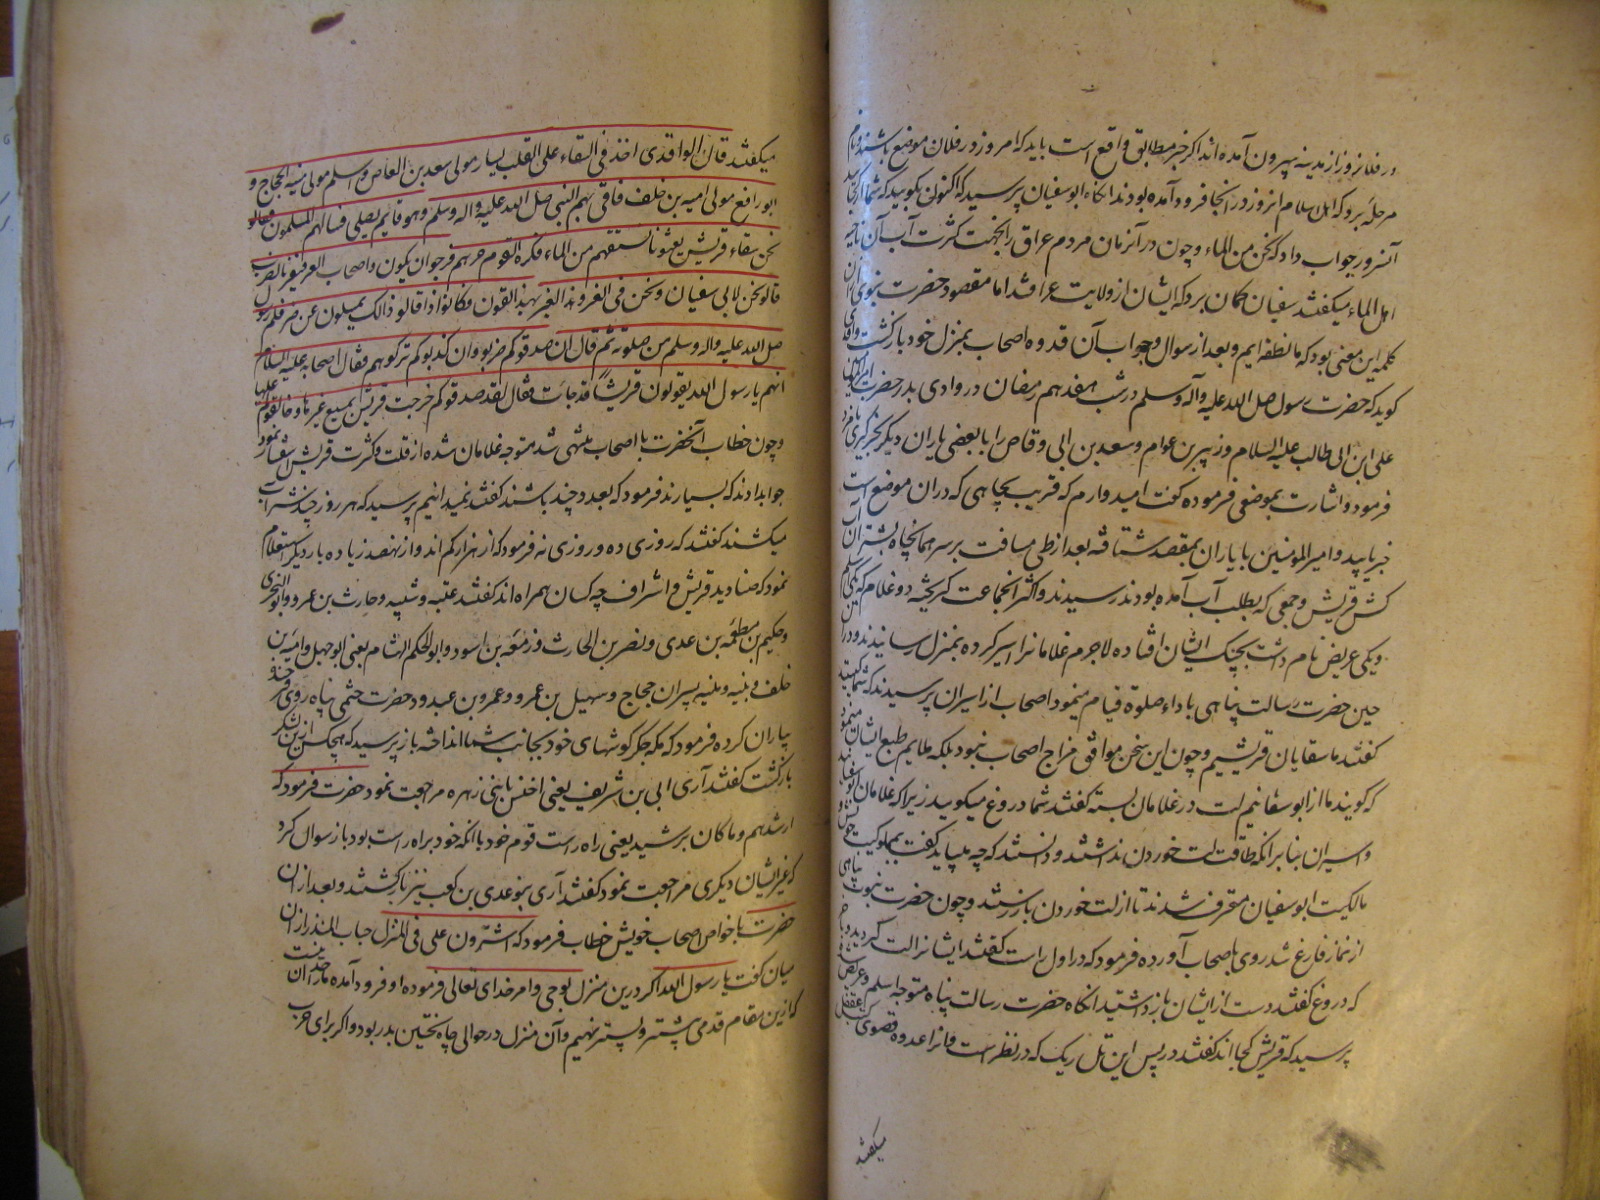 در فلان روز از مدینه بیرون آمده اند اگر خبر مطابق واقع است باید که امروز در فلان موضع باشند و نام
مرحلهٔ برد که اهل اسلام انروز در انجا فرود آمده بودند انگاه ابو سفیان پرسید که اکنون بگویید که شما از کجایید
آنسرور جواب داد که نحن من الماء و چون در آنزمان مردم عراق را بجهت کثرت آب آن ناحیه
اهل الماء میگفتند سفیان گمان برد که ایشان از ولایت عراقند اما مقصود حضرت نبوی ازان
کلمه این معنی بود که ما نطفه ایم و بعد از سوال و جواب آن قدوه اصحاب بمنزل خود بازگشت واقدی
گوید که حضرت رسول صلی الله علیه و آله وسلم در شب هفدهم رمضان در وادی بدر حضرت امیر المومنین
علی ابن ابی طالب علیه السلام و زبیر بن عوام و سعد بن ابی وقاص را با بعضی یاران دیگر بخبرگیری نامزد
فرمود و اشارت بموضعی فرموده گفت امیدوارم که قریب بچاهی که دران موضع است
خبر یابید و امیر المومنین با یاران بمقصد شتافته بعد از طی مسافت بر سر همانچاه بشتران آب
کش قریش و جمعی که بطلب آب آمده بودند رسیدند و اکثر انجماعت گریخته دو غلام که یکی اسلم
و یکی عریض نام داشت بچنگ ایشان افتاده لاجرم غلامانرا اسیر کرده بمنزل رسانیدند و در
حین حضرت رسالت پناهی باداء صلوة قیام مینمود اصحاب از اسیران پرسیدند که شما کیستید
گفتند ما سقایان قریشیم و چون این سخن موافق مزاج اصحاب نبود بلکه ملایم طبع ایشان مینمود
که گویند ما از ابو سفیانیم لت در غلامان بسته گفتند شما دروغ میگویید زیرا که غلامان ابو سفیانید
و اسیران بنا بر انکه طاقت لت خوردن نداشتند و دانستند که چه میباید گفت بمملوکیت خویش و
مالکیت ابو سفیان معترف شدند تا از لت خوردن باز رستند و چون حضرت نبوت پناهی
از نماز فارغ شد روی باصحاب آورده فرمود که در اول راست گفتند ایشانرا لت کردید و باز
که دروغ گفتند دست از ایشان باز داشتید انگاه حضرت رسالت پناه متوجه اسلم و عریض شده
پرسید که قریش کجا اند گفتند در پس این تل ریک که در نظر است و انرا عدوه قصوی
میگفتند
میگفتند قال الواقدی اخذ فی السقاء علی القلب یسار مولی سعد بن العاص و اسلم مولی منبه الحجاج و
ابو رافع مولی امیه بن خلف فاتی بهم النبی صلی الله علیه و آله وسلم و هو قایم یصلی فسالهم المسلمون فقالو
نحن سقاء قریش بعثونا نسقهم من الماء فکره القوم خبرهم فرجوان یکون
قالو نحن لابی سفیان و نحن فی العیر و هذا العیر بهذا القون فکانوا اذا قالو ذالک یمسلون عن ضربهم
صلی الله علیه واله وسلم من صلوته ثم قال ان صدقوکم ضربو وان کذبوکم ترکوهم فقال اصحابه علیه السلام
انهم یا رسول الله یقولون قریشا قد جات فقال لقد صدقوکم خرجت قریش
و چون خطاب آنحضرت با اصحاب منتهی شد متوجه غلامان شده از قلت و کثرت قریش استفسار نمود
جوابدادند که بسیارند فرمود که بعدد چند باشند گفتند نمیدانیم پرسید که هر روز چند شتر
میکشند گفتند که روزی ده و روزی نه فرمود که از هزار کم اند و از نهصد زیاده بار دیگر استعلام
نمود که صنادید قریش و اشراف چه کسان همراه اند گفتند عتبه و شیبه و حارث بن عمرو و ابو البختری
و حکیم بن طعمه بن عدی و نضر بن الحارث و زمعه بن اسود و ابو الحکم الهشام یعنی ابو جهل و امیه بن
خلف و بنیه و منبه پسران حجاج و سهیل بن عمرو و عمرو بن عبدود حضرت ختمی پناه روی
بیاران کرده فرمود که مکه جگر گوشهای خود بجانب شما انداخته باز پرسید که هیچکس ازین لشکر
بازگشت گفتند آری ابی بن شریف یعنی اخنس با بنی زهره مراجعت نمود حضرت فرمود که
ارشدهم و ما کان برشید یعنی راه راست قوم خود با انکه خود براه راست بود باز سوال کرد
که غیر ایشان دیگری مراجعت نمود گفتند آری بنو عدی بن کعب نیز بازگشتند و بعد ازان
حضرت با خواص اصحاب خویش خطاب فرمود که اشیرون علی فی المنزل حباب المنذر ازان
میان گفت یا رسول الله اگر درین منزل بوحی و امر خدای تعالی فرموده او فرود آمده ما را حد آن نیست
که ازین مقام قدمی پیشتر و پستر نهیم و آن منزل در حوالی چاه نخستین بدر بود و اگر برای حرب